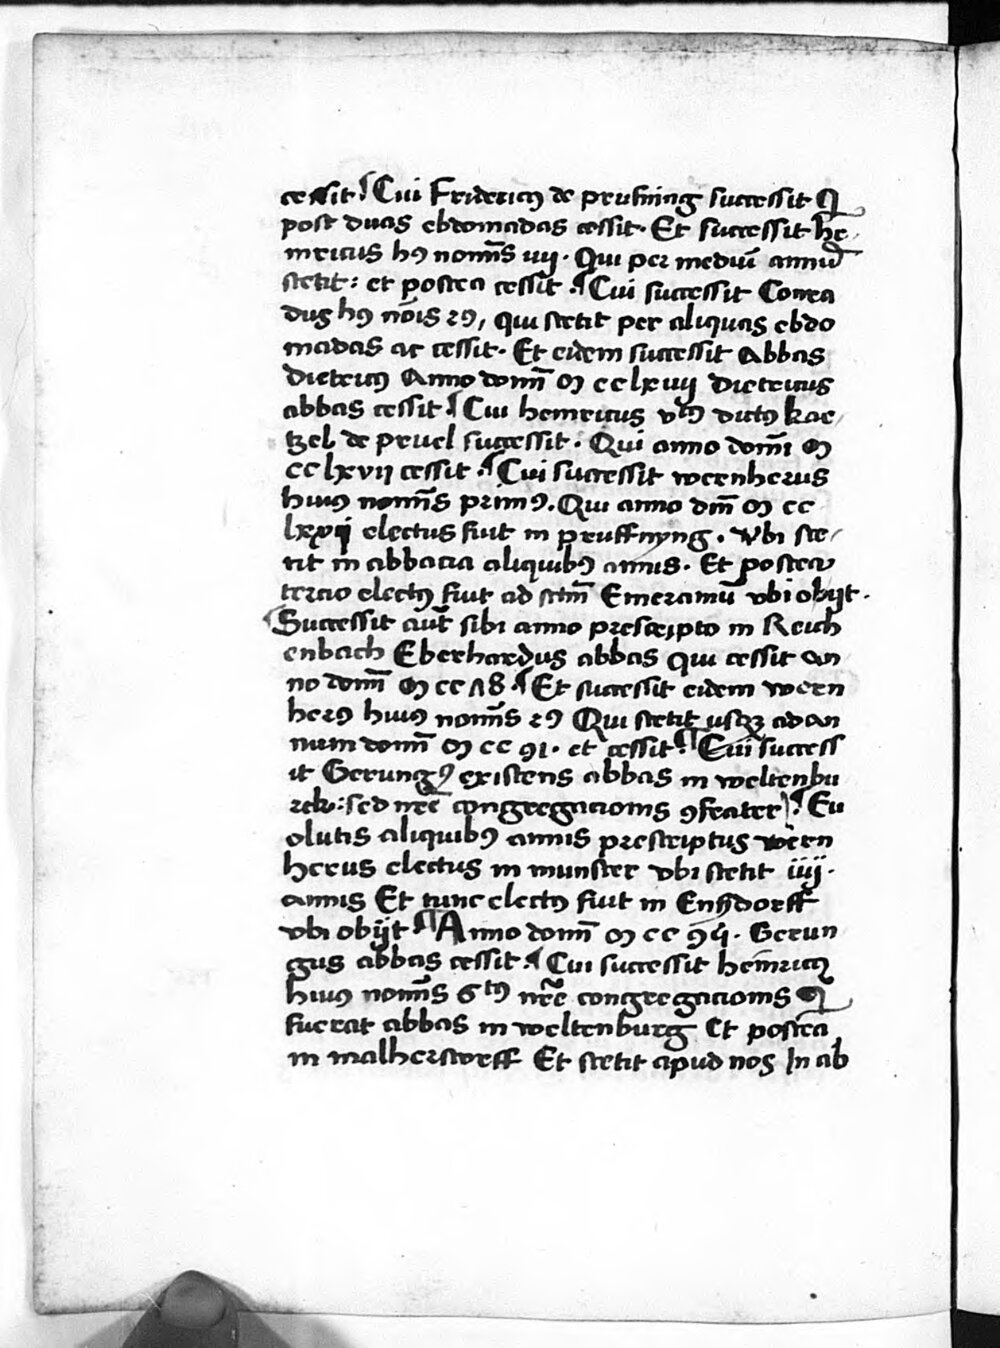 cessit ¶ Cui Fridericꝰ de prufning successit Q
post duas ebdomadas cessit· Et successit he
inricus hꝰ nomīs iiij · Qui per mediū annū
stetit : et postea cessit ¶ Cui successit Conra
dus hꝰ nōis 2ꝰ, qui stetit per aliquas ebdo
madas ac cessit· Et eidem successit Abbas
Dietericꝰ Anno domī M cc lxiiij Dietericus
abbas cessit ¶ Cui heinricus vtꝰ dictꝰ kae
tzel de pruel successit · Qui anno domī M
cc lxvii cessit ¶ Cui successit wernherus
huiꝰ nomīs primꝰ. Qui anno dm̄ M cc
electus fuit in pruffnyng · vbi ste
tit in abbacia aliquibꝰ annis · Et postea
tercio electꝰ fuit ad sctm̄ Emeramū vbi obijt ·
¶ Successit aut̄ sibi anno prescripto in Reich
enbach Eberhardus abbas qui cessit an
no domī M cc Λ8 ¶ Et successit eidem wern
herꝰ huiꝰ nomīs 2ꝰ Qui stetit usqꝫ ad an
num domī M cc 91 · et cessit ¶ Cui success
it Gerungꝰ existens abbas in weltenbu
rck : sed nr̄e congregacionis ꝯfrater ¶ Eu
olutis aliquibꝰ annis prescriptus wern
herus electus in munster vbi stetit iiij ·
annis Et tunc electꝰ fuit in Ensdorff
vbi obijt ¶ Anno domī M cc 9ij · Gerun
gus abbas cessit ¶ Cui successit heinricꝰ
huiꝰ nomīs 6tꝰ nr̄e congregacionis Q
fuerat abbas in weltenburg Et postea
in malherstorff Et stetit apud nos In ab